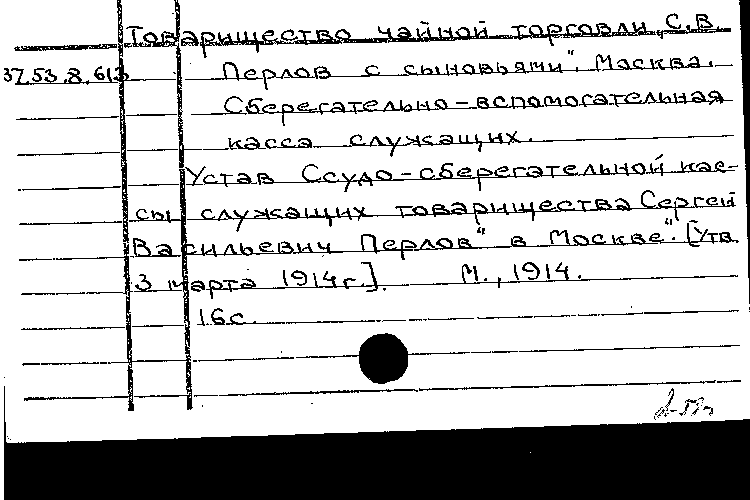 Товарищество чайной торговли „С.В.
37.53.8.613 Перлов с сыновьями", Москва.
Сберегательно-вспомогательная
касса служащих.
Устав Ссудо-сберегательной кас-
сы служащих товарищества Сергей
Васильевич Перлов" в Москве". [Утв.
3 марта 1914г.]. М., 1914.
16с.